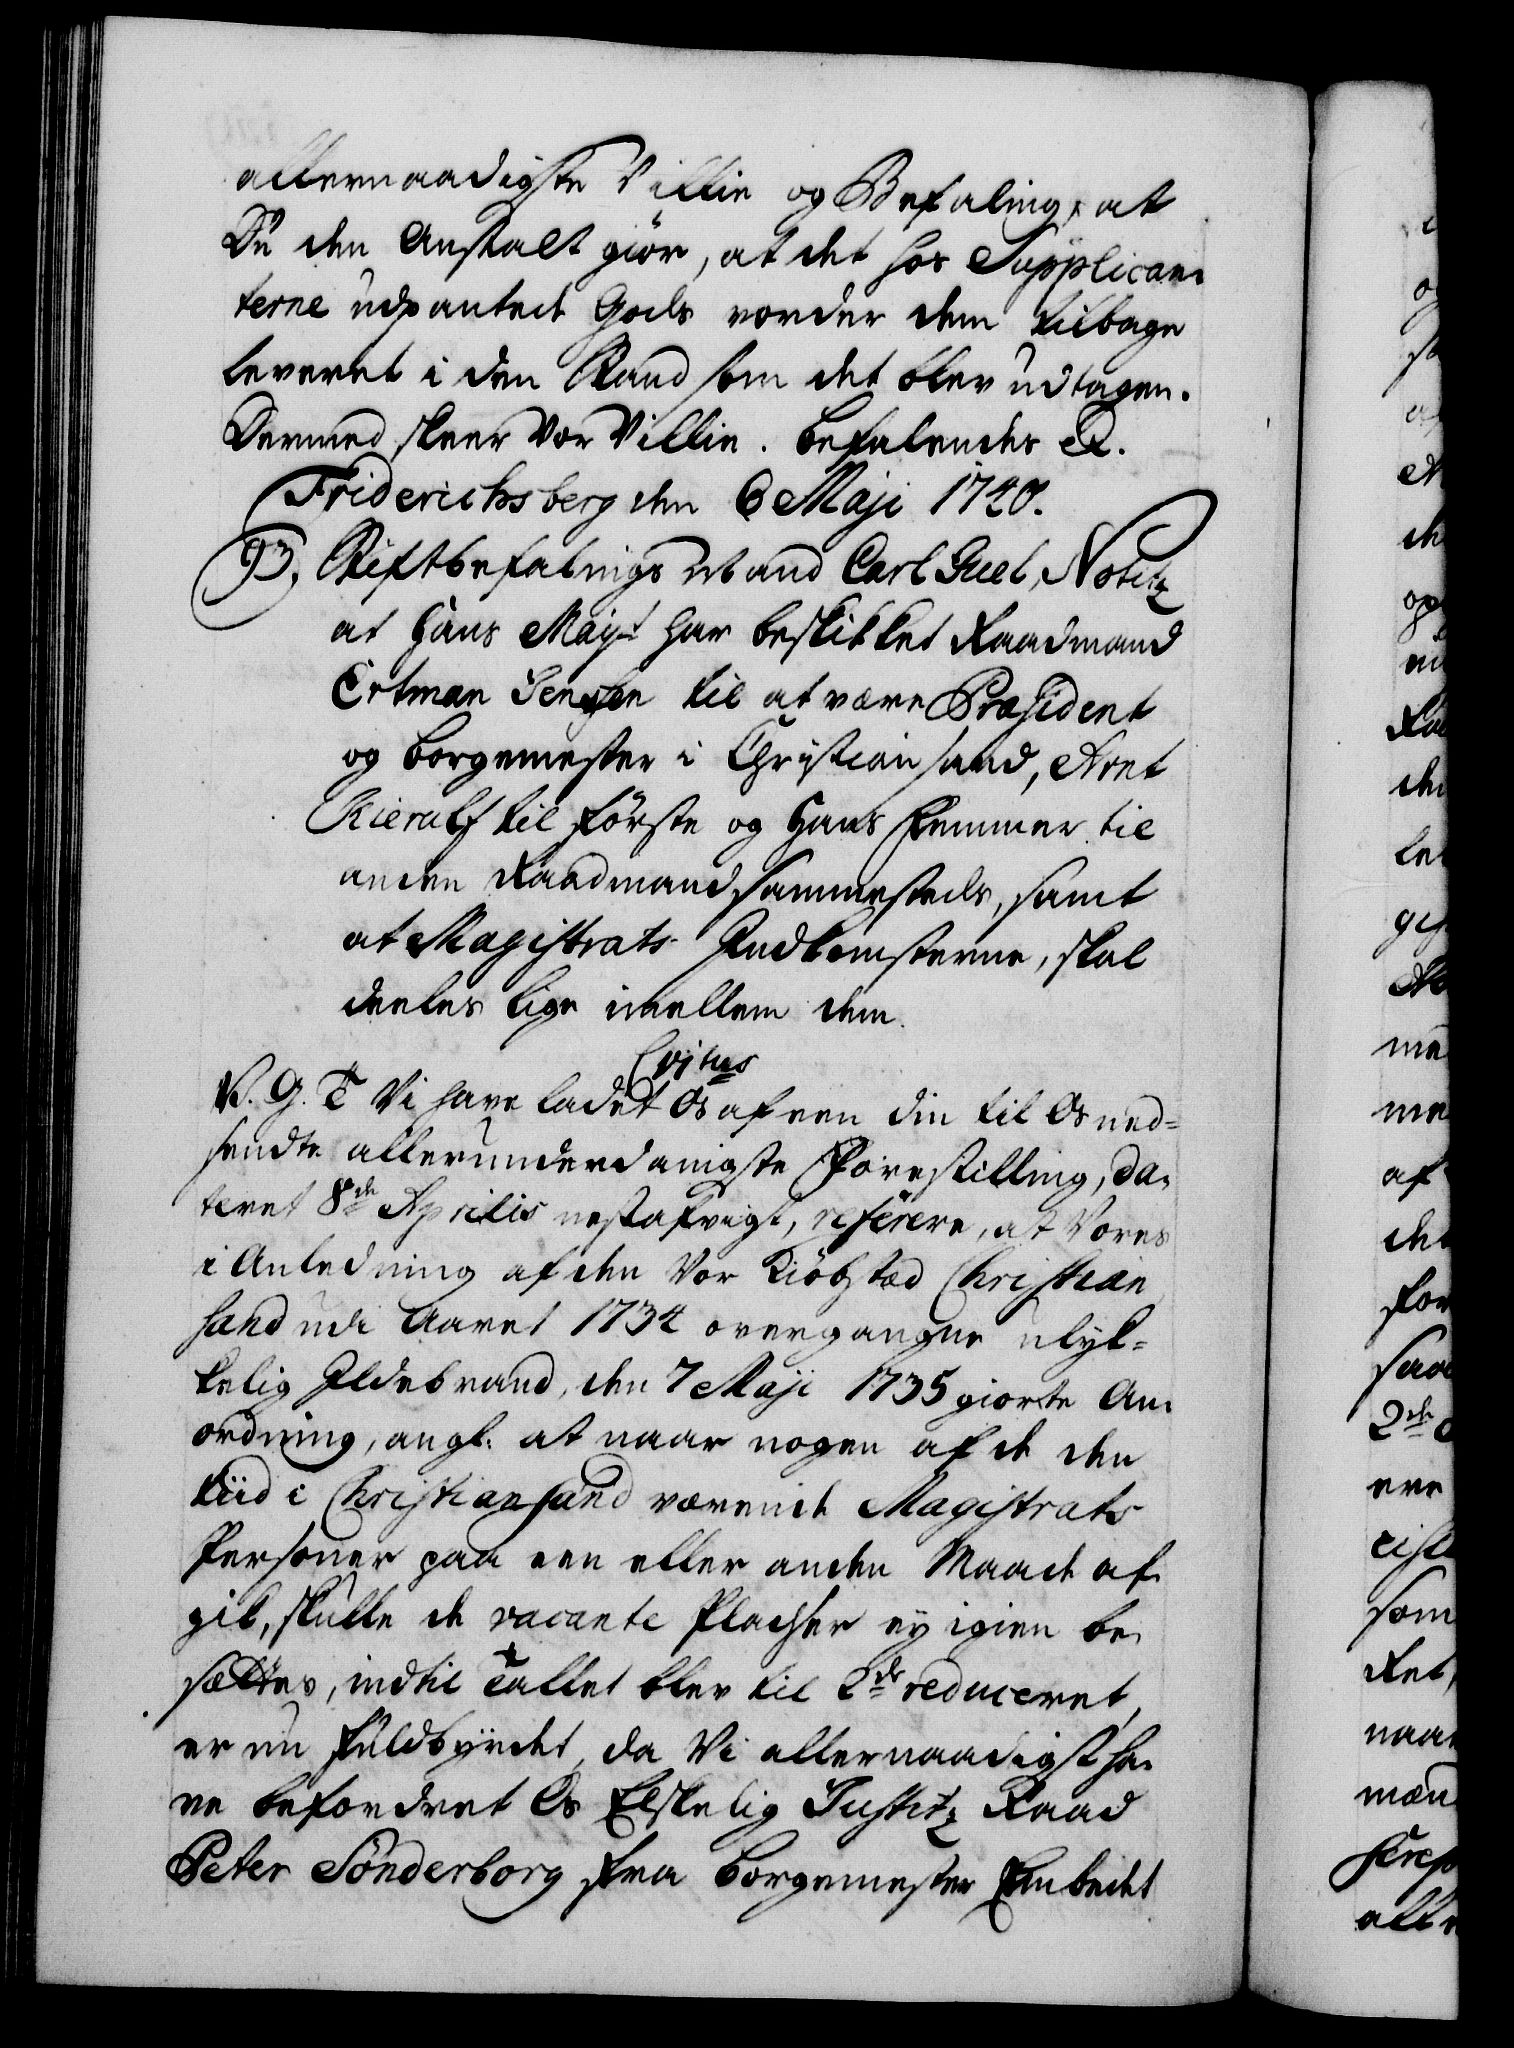 allernaadigste Villie og Befaling, at
Du den Anstalt giør, at det hos Supplican-
terne udpantede Gods vorder dem tilbage
leveret i den Stand som det blev udtagen.
Dermed skeer Vor Villie. Befalendes &.
Friderichsberg den 6 Maji 1740.
93, Stiftbefalings Mand Carl Juel, Notitz
at Hans Mayt har beskikket Raadmand
Ertman Jenssen til at være Præsident
og borgemester i Christiansand, Arnt
Kierulf til første og Hans Hemmer til
anden Raadmand sammesteds, samt
at Magistrats Indkomsterne, skal
deeles lige imellem dem.
N. G. T Vi have ladet Os af een din til Os ned-
sendte allerunderdanigste Forestilling, da-
teret 8de Aprilis nestafvigt, referere, at Vores
i Anledning af den Vor Kiøbstæd Christian
sand udi Aaret 1734 overgangne ulyk-
kelig Ildebrand, den 7 Maji 1735 giorte An-
ordning, ang: at naar nogen af de den
tiid i Christiansand værende Magistrats
Personer paa een eller anden Maade af-
gik, skulle de vacante Pladser ey igien be-
sættes, indtil Tallet blev til 2de reduceret,
er nu fuldbyrdet, da Vi allernaadigst ha-
ve befordret Os Elskelig Justitz Raad
Peter Sønderborg fra borgemester Embedet